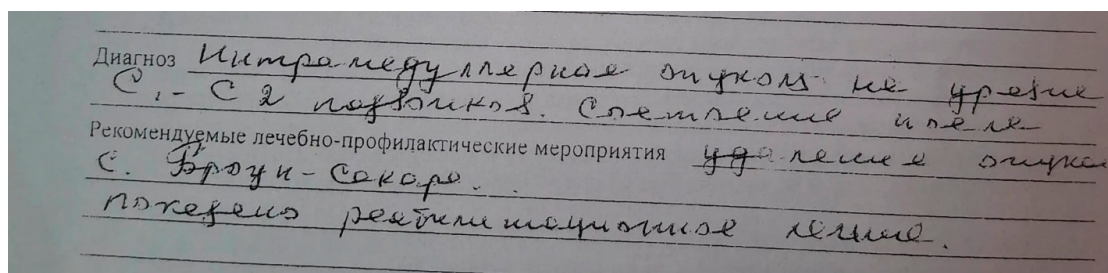 Диагноз Интрамедуллярная опухоль на уровне
С1 - С2 позвонков. Состояние после
Рекомендуемые лечебно-профилактические мероприятия удаления опухол
С. Броун-Секаре.
показано реабилитационное лечение.